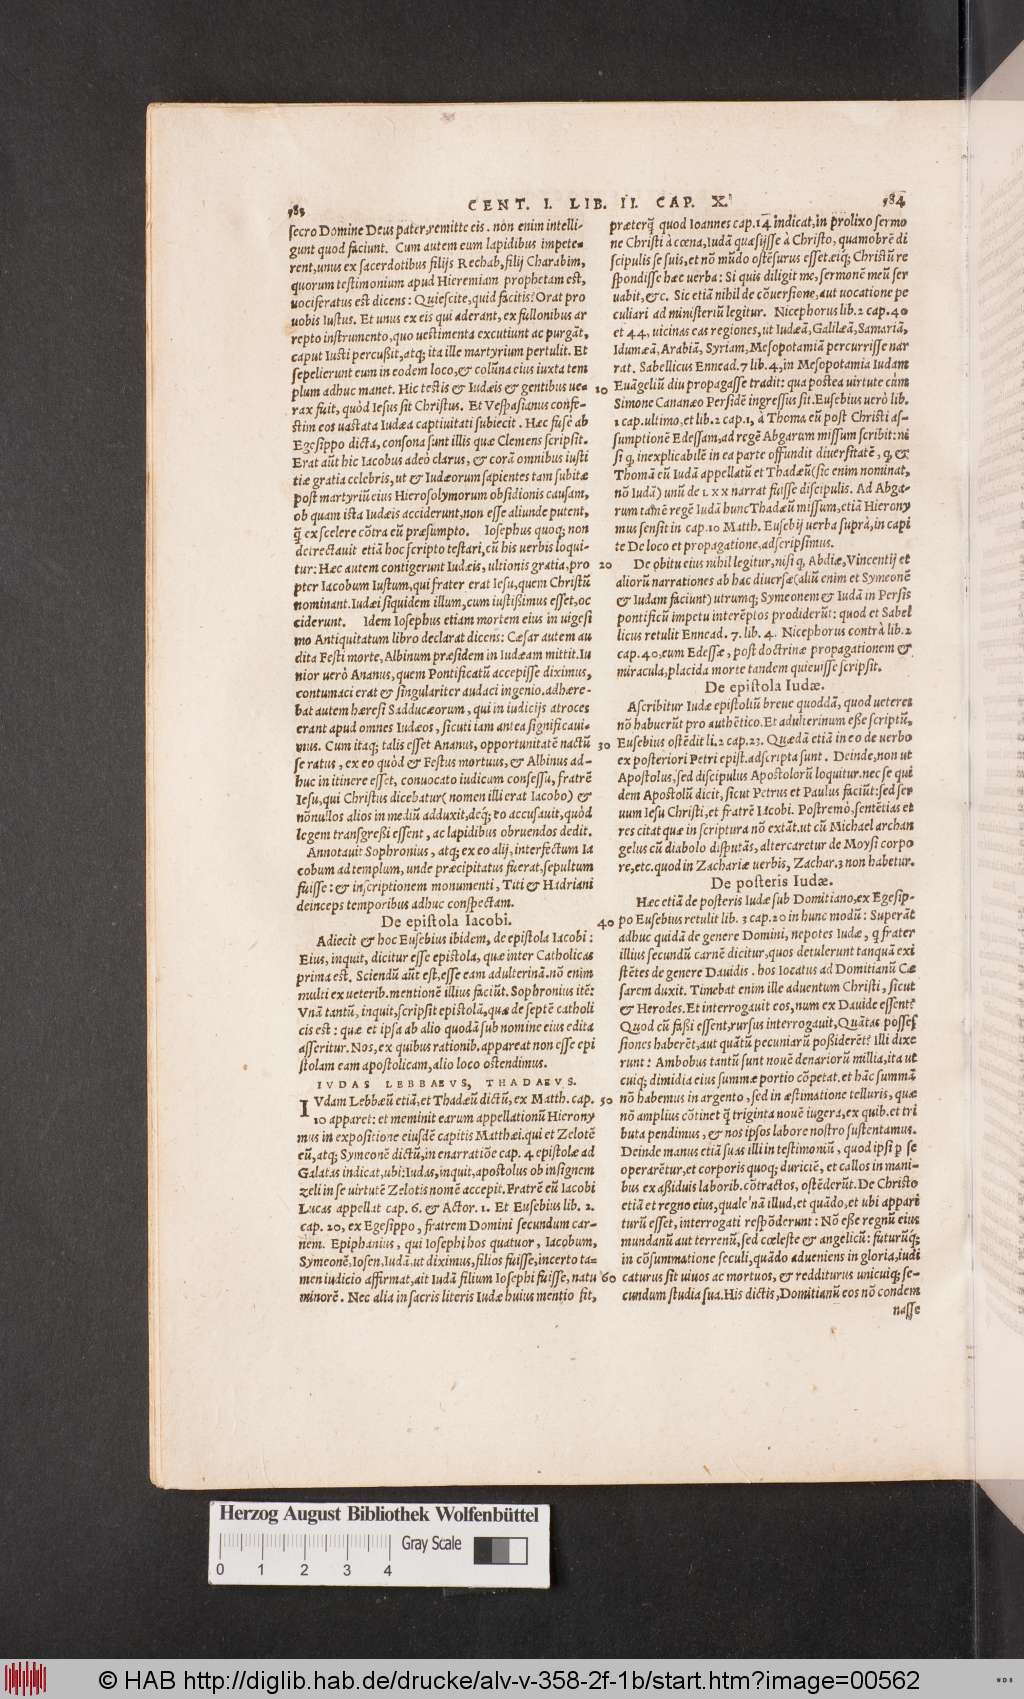 583 CENT. I. LIB. II. CAP. X. 584
secro Domine Deus pater, remitte eis. non enim intelli-
gunt quod faciunt. Cum autem eum lapidibus impete-
rent, unus ex sacerdotibus filijs Rechab, filij Charabim,
quorum testimonium apud Hieremiam prophetam est,
uociferatus est dicens: Quiescite, quid facitis? Orat pro
uobis Iustus. Et unus ex eis qui aderant, ex fullonibus ar
repto instrumento, quo uestimenta excutiunt ac purgāt,
caput Iusti percußit, atq; ita ille martyrium pertulit. Et
sepelierunt eum in eodem loco, & colūna eius iuxta tem
plum adhuc manet. Hic testis & Iudæis & gentibus ue-
rax fuit, quòd Iesus sit Christus. Et Vespasianus confe-
stim eos uastata Iudæa captiuitati subiecit. Hæc fusè ab
Egesippo dicta, consona sunt illis quæ Clemens scripsit.
Erat aūt hic Iacobus adeò clarus, & corā omnibus iusti
tiæ gratia celebris, ut & Iudæorum sapientes tam subitæ
post martyriū eius Hierosolymorum obsidionis causam,
ob quam ista Iudæis acciderunt, non esse aliunde putent,
q̃ ex scelere cōtra eū præsumpto. Iosephus quoq; non
detrectauit etiā hoc scripto testari, cū his uerbis loqui-
tur: Hæc autem contigerunt Iudæis, ultionis gratia, pro
pter Iacobum Iustum, qui frater erat Iesu, quem Christū
nominant. Iudæi siquidem illum, cum iustißimus esset, oc
ciderunt. Idem Iosephus etiam mortem eius in uigesi
mo Antiquitatum libro declarat dicens: Cæsar autem au
dita Festi morte, Albinum præsidem in Iudæam mittit. Iu
nior uerò Ananus, quem Pontificatū accepisse diximus,
contumaci erat & singulariter audaci ingenio. adhære-
bat autem hæresi Sadducæorum, qui in iudicijs atroces
erant apud omnes Iudæos, sicuti iam antea significaui-
mus. Cum itaq; talis esset Ananus, opportunitatē nactū
se ratus, ex eo quòd & Festus mortuus, & Albinus ad-
huc in itinere esset, conuocato iudicum consessu, fratrē
Iesu, qui Christus dicebatur (nomen illi erat Iacobo) &
nōnullos alios in mediū adduxit, deq; eo accusauit, quòd
legem transgreßi essent, ac lapidibus obruendos dedit.
Annotauit Sophronius, atq; ex eo alij, interfectum Ia
cobum ad templum, unde præcipitatus fuerat, sepultum
fuisse: & inscriptionem monumenti, Titi & Hadriani
deinceps temporibus adhuc conspectam.
De epistola Iacobi.
Adiecit & hoc Eusebius ibidem, de epistola Iacobi:
Eius, inquit, dicitur esse epistola, quæ inter Catholicas
prima est. Sciendū aūt est, esse eam adulterinā. nō enim
multi ex ueterib. mentionē illius faciūt. Sophronius itē:
Vnā tantū, inquit, scripsit epistolā, quæ de septē catholi
cis est: quæ et ipsa ab alio quodā sub nomine eius edita
asseritur. Nos, ex quibus rationib. appareat non esse epi
stolam eam apostolicam, alio loco ostendimus.
IVDAS LEBBAEVS, THADAEVS.
IVdam Lebbæū etiā, et Thadæū dictū, ex Matth. cap.
10 apparet: et meminit earum appellationū Hierony
mus in expositione eiusdē capitis Matthæi. qui et Zelotē
eū, atq; Symeonē dictū, in enarratiōe cap. 4 epistolæ ad
Galatas indicat, ubi: Iudas, inquit, apostolus ob insignem
zeli in se uirtutē Zelotis nomē accepit. Fratrē eū Iacobi
Lucas appellat cap. 6. & Actor. 1. Et Eusebius lib. 2.
cap. 20, ex Egesippo, fratrem Domini secundum car-
nem. Epiphanius, qui Iosephi hos quatuor, Iacobum,
Symeonē, Iosen, Iudā, ut diximus, filios fuisse, incerto ta-
men iudicio affirmat, ait Iudā filium Iosephi fuisse, natu
minorē. Nec alia in sacris literis Iudæ huius mentio fit,
præterq̃ quod Ioannes cap. 14 indicat, in prolixo sermo
ne Christi à cœna, Iudā quæsijsse à Christo, quamobrē di
scipulis se suis, et nō mūdo ostēsurus esset. eiq; Christū re
spondisse hæc uerba: Si quis diligit me, sermonē meū ser
uabit, &c. Sic etiā nihil de cōuersione, aut uocatione pe
culiari ad ministeriū legitur. Nicephorus lib. 2 cap. 40
et 44, uicinas eas regiones, ut Iudæā, Galilæā, Samariā,
Idumæā, Arabiā, Syriam, Mesopotamiā percurrisse nar
rat. Sabellicus Ennead. 7 lib. 4, in Mesopotamia Iudam
10 Euāgeliū diu propagasse tradit: qua postea uirtute cùm
Simone Cananæo Persidē ingressus sit. Eusebius uerò lib.
1 cap. ultimo, et lib. 2 cap. 1, à Thoma eū post Christi as-
sumptionē Edessam, ad regē Abgarum missum scribit: ni
si q, inexplicabilē in ea parte offundit diuersitatē, q, &
Thomā eū Iudā appellatū et Thadæū (sic enim nominat,
nō Iudā) unū de LXX narrat fuisse discipulis. Ad Abga-
rum tamē regē Iudā hunc Thadæū missum, etiā Hierony
mus sensit in cap. 10 Matth. Eusebij uerba suprà, in capi
te De loco et propagatione, adscripsimus.
20 De obitu eius nihil legitur, nisi q, Abdiæ, Vincentij et
aliorū narrationes ab hac diuersæ (aliū enim et Symeonē
& Iudam faciunt) utrumq; Symeonem & Iudā in Persis
pontificū impetu interēptos prodiderūt: quod et Sabel
licus retulit Ennead. 7. lib. 4. Nicephorus contrà lib. 2
cap. 40, eum Edessæ, post doctrinæ propagationem &
miracula, placida morte tandem quieuisse scripsit.
De epistola Iudæ.
Ascribitur Iudæ epistoliū breue quoddā, quod ueteres
nō habuerūt pro authētico. Et adulterinum eße scriptū,
30 Eusebius ostēdit li. 2 cap. 23. Quædā etiā in eo de uerbo
ex posteriori Petri epist. adscripta sunt. Deinde, non ut
Apostolus, sed discipulus Apostolorū loquitur. nec se qui
dem Apostolū dicit, sicut Petrus et Paulus faciūt: sed ser
uum Iesu Christi, et fratrē Iacobi. Postremò, sentētias et
res citat quæ in scriptura nō extāt. ut cū Michael archan
gelus cū diabolo disputās, altercaretur de Moysi corpo
re, etc. quod in Zachariæ uerbis, Zachar. 3 non habetur.
De posteris Iudæ.
Hæc etiā de posteris Iudæ sub Domitiano, ex Egesip-
40 po Eusebius retulit lib. 3 cap. 20 in hunc modū: Superāt
adhuc quidā de genere Domini, nepotes Iudæ, q frater
illius secundū carnē dicitur, quos detulerunt tanquā exi
stētes de genere Dauidis. hos Iocatus ad Domitianū Cæ
sarem duxit. Timebat enim ille aduentum Christi, sicut
& Herodes. Et interrogauit eos, num ex Dauide essent?
Quod cū faßi essent, rursus interrogauit, Quātas posses
siones haberēt, aut quātū pecuniarū poßiderēt? Illi dixe
runt: Ambobus tantū sunt nouē denariorū millia, ita ut
cuiq; dimidia eius summæ portio cōpetat. et hāc summā
50 nō habemus in argento, sed in æstimatione telluris, quæ
nō amplius cōtinet q̃ triginta nouē iugera, ex quib. et tri
buta pendimus, & nos ipsos labore nostro sustentamus.
Deinde manus etiā suas illi in testimoniū, quod ipsi p se
operarētur, et corporis quoq; duriciē, et callos in mani-
bus ex aßiduis laborib. cōtractos, ostēderūt. De Christo
etiā et regno eius, quale'nā illud, et quādo, et ubi appari
turū esset, interrogati respōderunt: Nō eße regnū eius
mundanū aut terrenū, sed cœleste & angelicū: futurūq;
in cōsummatione seculi, quādo adueniens in gloria, iudi
60 caturus sit uiuos ac mortuos, & redditurus unicuiq; se-
cundum studia sua. His dictis, Domitianū eos nō condem
nasse
Herzog August Bibliothek Wolfenbüttel
Gray Scale
0 1 2 3 4
© HAB http://diglib.hab.de/drucke/alv-v-358-2f-1b/start.htm?image=00562